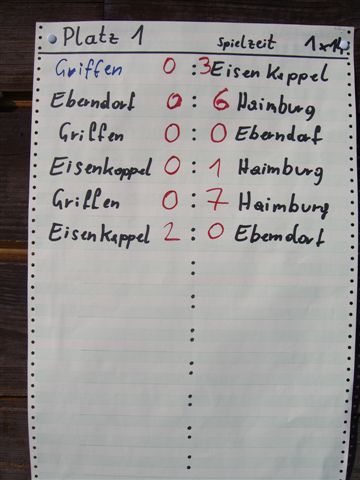 Platz 1 Spielzeit 1x14
Griffen 0 : 3 Eisenkappel
Eberndorf 0 : 6 Haimburg
Griffen 0 : 0 Eberndorf
Eisenkappel 0 : 1 Haimburg
Griffen 0 : 7 Haimburg
Eisenkappel 2 : 0 Eberndorf